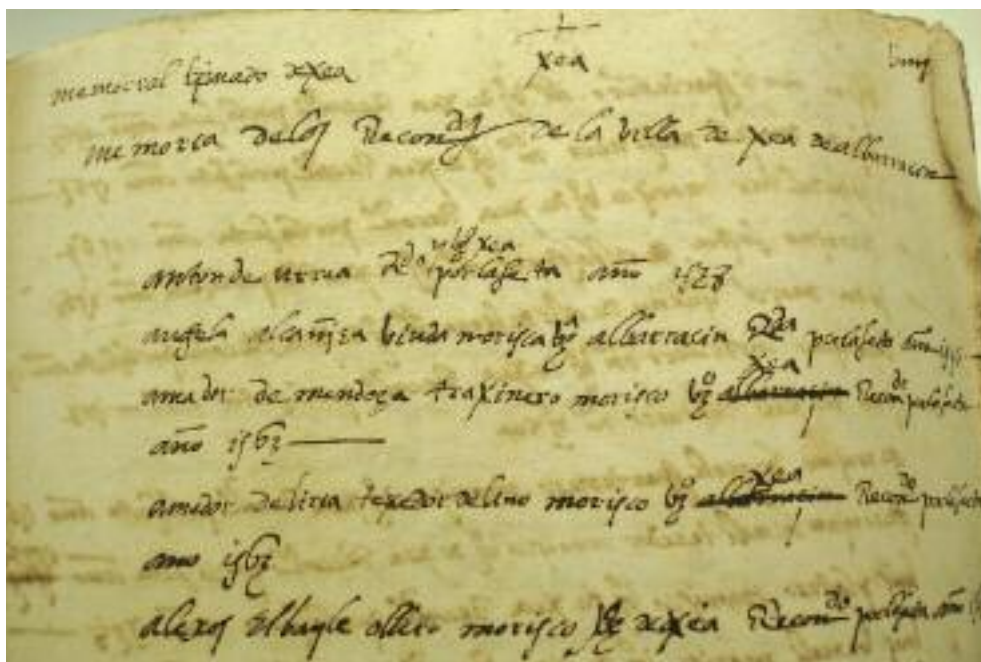 xea
memorial de xea
memoria delos Recon.dos de la billa de xea de albarracin
vº xea
anton de urrea R.do por la seta año 1528
angela biuda morisca vª albarracin R.da por la seta año
xea
amador de mendoça traxinero morisco vº albarracin Recon.do por la seta
año 1562
xea
amador de liria texedor de lino morisco vº albarracin Recon.do por la seta
año 1562
alexos el bayle ollero morisco vº de xea Recon.do por la seta año